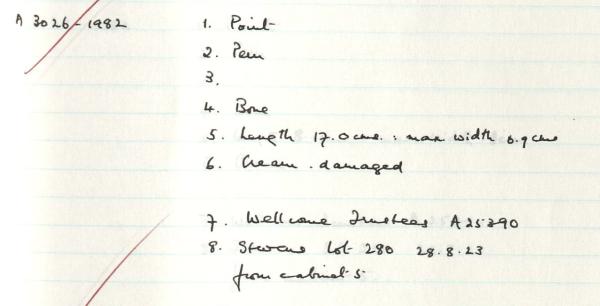 A 3026-1982 1. Point
2. Peru
3.
4. Bone
5. Length 17.0 cms. : max width 0.9 cms
6. Cream. damaged
7. Wellcome Trustees A25390
8. Stevens lot 280 28.8.23
from cabinet 5